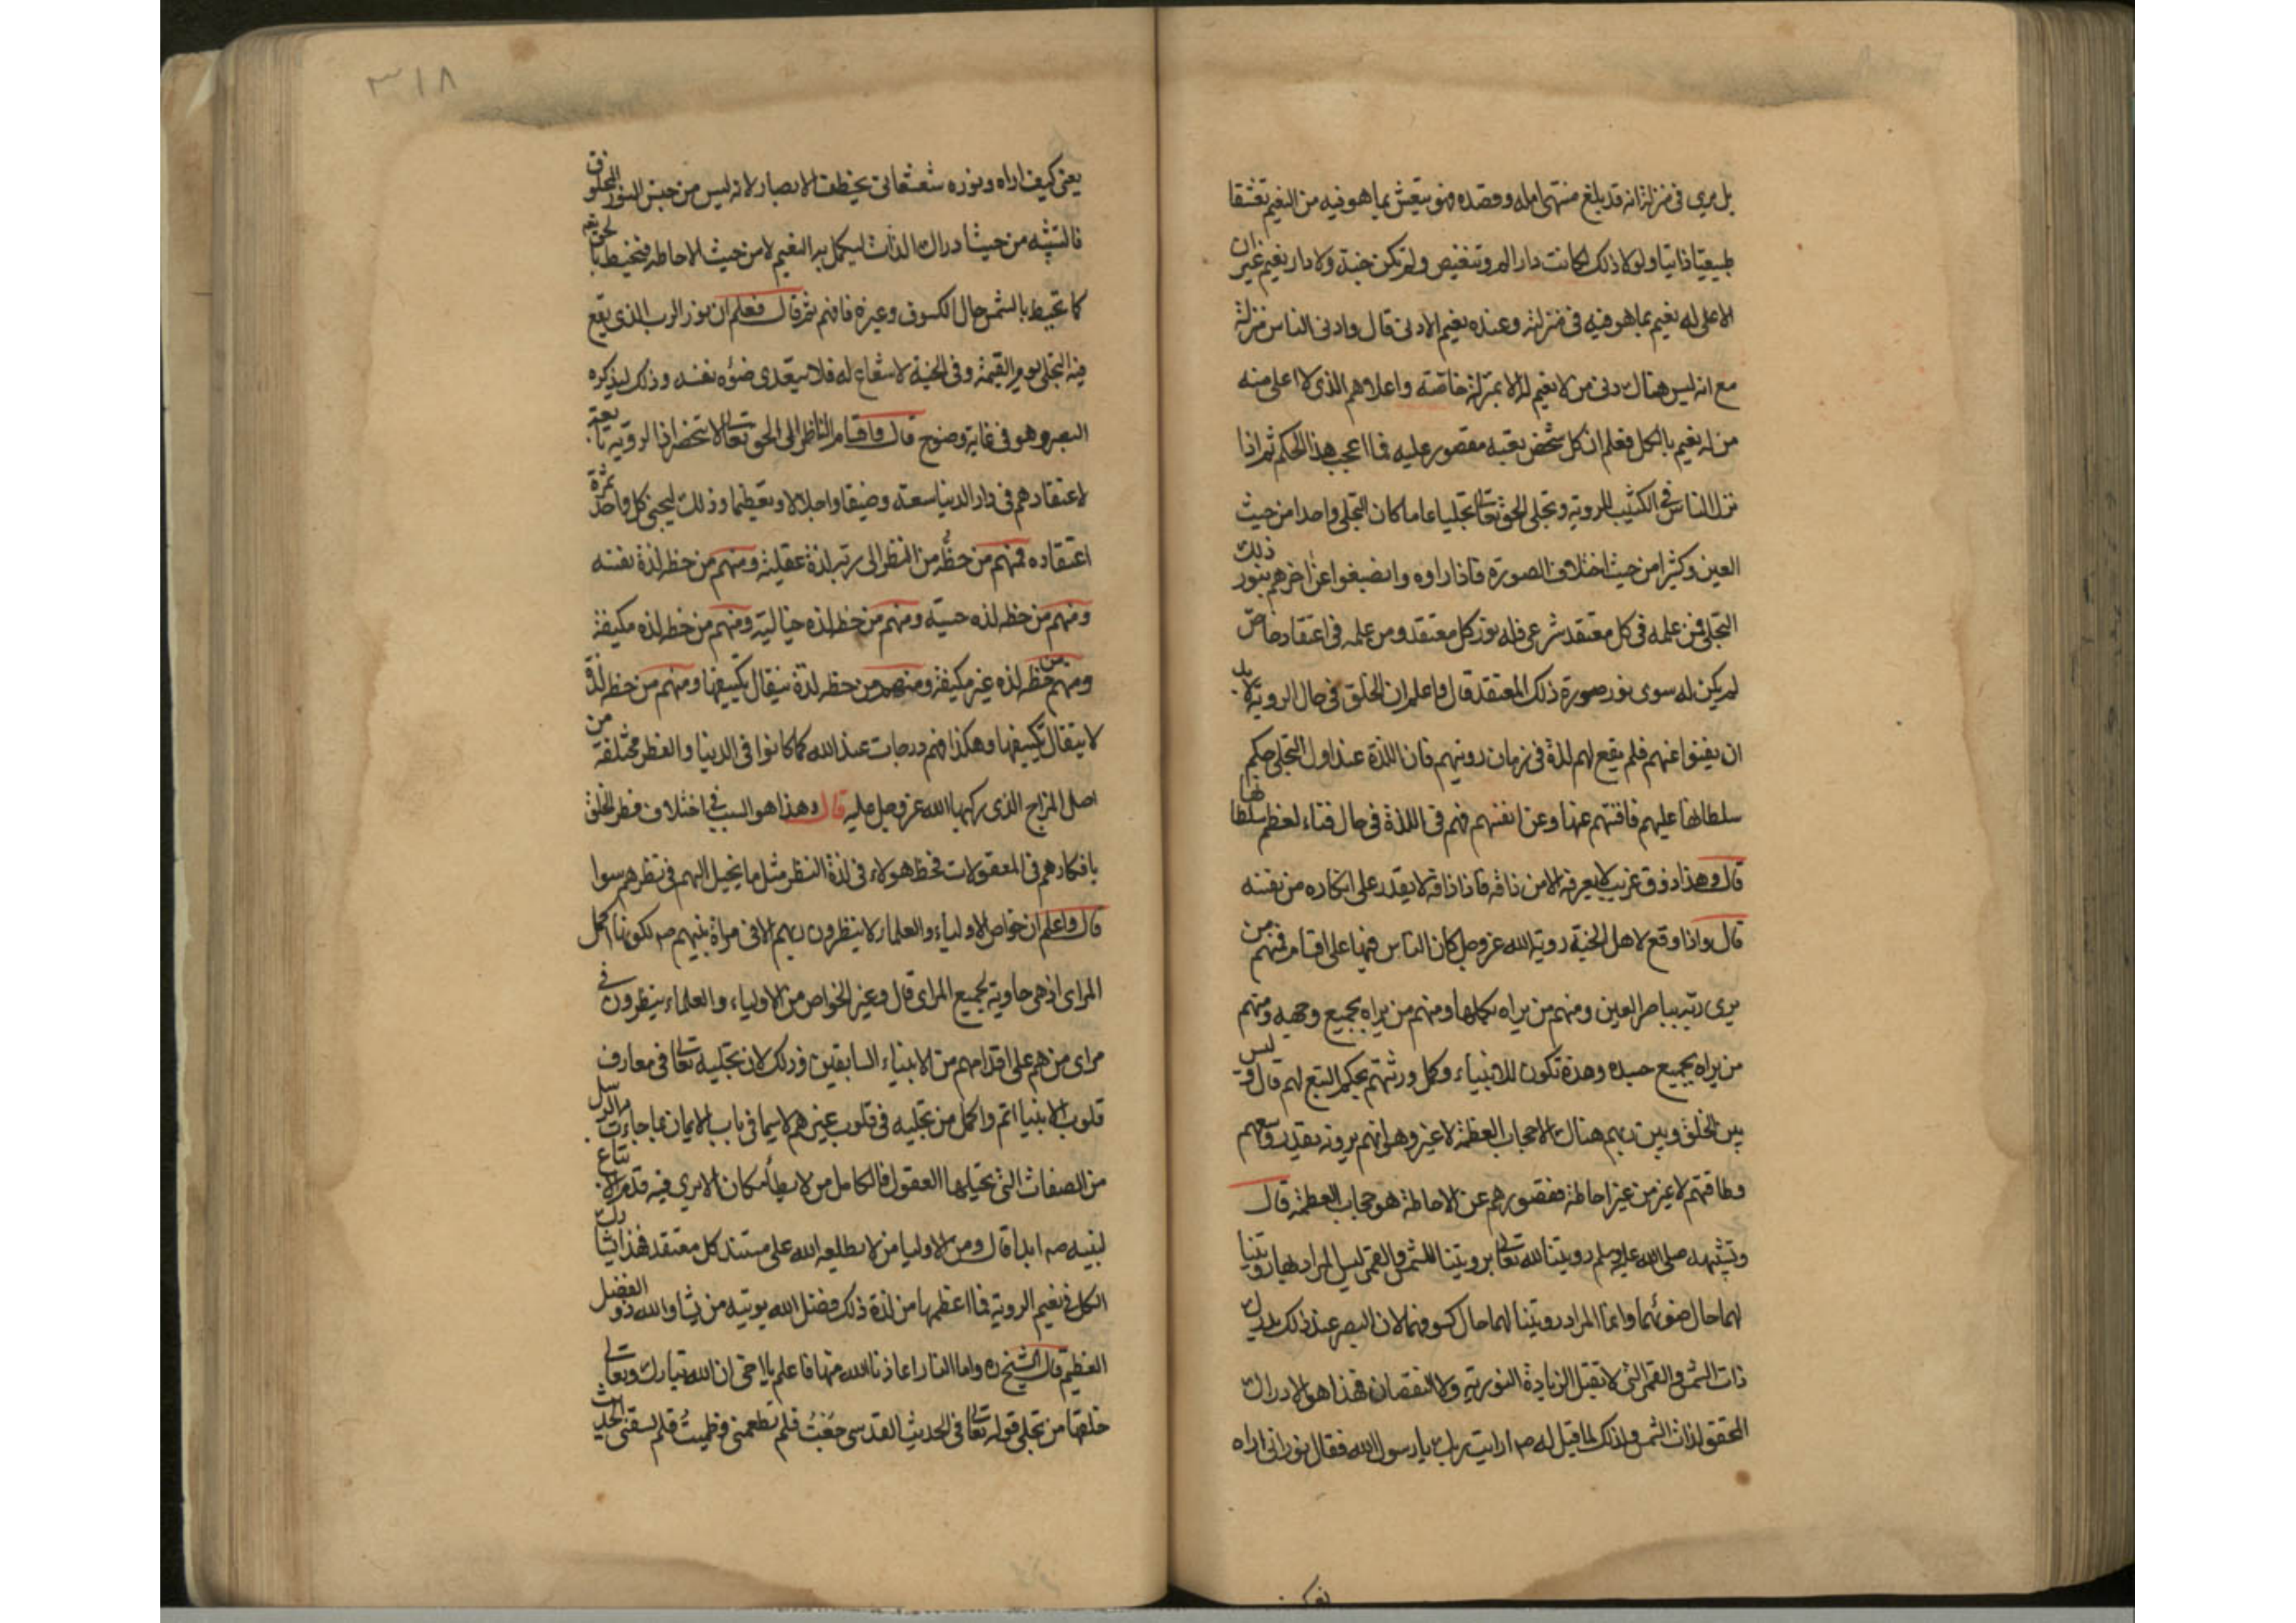 بل يرى فى منزلته انه قد بلغ منتهى امله وقصده فهو يتعشق بما هو فيه من النعيم تعشقا
طبيعيا ذاتيا ولولا ذلك لكانت دار الم وتنغيص ولم تكن جنة ولا دار نعيم غير ان
الاعلى له نعيم بما هو فيه فى منزلته وعنده نعيم الادنى قال وادنى الناس منزلة
مع انه ليس هناك دنى من لا نعيم له الا بمنزلته خاصة واعلاهم الذى لا اعلى منه
من له نعيم بالكل فعلم ان كل شخص نعيمه مقصور عليه فما اعجب هذا الحكم ثم اذا
نزل الناس فى الكثيب للروية وتجلى الحق تعالى تجليا عاما كان التجلى واحدا من حيث
العين وكثيرا من حيث اختلاف الصورة فاذا راوه وانصبغوا عن اخرهم بنور ذلك
التجلى فمن علمه فى كل معتقد شرعى فله نور كل معتقد ومن علمه فى اعتقاد خاص
لم يكن له سوى نور صورة ذلك المعتقد قال واعلم ان الخلق فى حال الروية لا بد
ان يفنوا عنهم فلم يقع لهم لذة فى زمان رويتهم فان اللذة عند اول التجلى حكم
سلطانها عليهم فافنتهم عنها وعن انفسهم فهم فى اللذة فى حال فناء لعظم سلطانها
قال وهذا ذوق غريب لا يعرفه الا من ذاقه فاذا ذاقه لا يقدر على انكاره من نفسه
قال واذا وقع لاهل الجنة روية الله عز وجل كان الناس فيها على اقسام فمنهم من
يرى ربه بباصر العين ومنهم من يراه بكلها ومنهم من يراه بجميع وجهه ومنهم
من يراه بجميع جسده وهذه تكون للانبياء وكل ورثتهم بحكم التبع لهم قال وليس
بين الخلق وبين ربهم هناك الا حجاب العظمة لا غير وهو انهم يرونه بقدر وسعهم
وطاقتهم لا غير من غير احاطة فقصورهم عن الاحاطة هو حجاب العظمة قال
وتشبيهه صلى الله عليه وسلم رويتنا لله تعالى برويتنا للشمس والقمر ليس المراد بها رويتنا
لهما حال ضوئهما وانما المراد رويتنا لهما حال كسوفهما لان البصر عند ذلك يدرك
ذات الشمس والقمر التى لا تقبل الزيادة النورية ولا النقصان فهذا هو الادراك
المحقق لذات الشمس ولذلك لما قيل له صم ارايت ربك يا رسول الله فقال نور انى اراه
٣١٨
يعنى كيف اراه ونوره شعشعانى يخطف الابصار لانه ليس من جنس النور المخلوق
فالتشبيه من حيث ادراك الذات ليكمل به النعيم لا من حيث الاحاطة فنحيط بالحق تعـ
كما نحيط بالشمس حال الكسوف وغيره فافهم ثم قال فعلم ان نور الرب الذى يقع
فيه التجلى يوم القيمة وفى الجنة لا شعاع له فلا يتعدى ضوءه نفسه وذلك ليدركه
البصر وهو فى غاية وضوح قال واقسام الناظر الى الحق تعالى لا تنحصر اذ الروية تابعة
لاعتقادهم فى دار الدنيا سعته وضيقا واجلالا وتعظيما وذلك ليجنى كل واحد ثمرة
اعتقاده فمنهم من حظه من النظر الى ربه لذة عقلية ومنهم من حظه لذة نفسه
ومنهم من حظه لذه حسية ومنهم من حظه لذه خيالية ومنهم من حظه لذه مكيفة
ومنهم من حظه لذه غير مكيفة ومنهم من حظه لذة ينقال تكييفها ومنهم من حظه لذة
لا ينقال تكييفها وهكذا فهم درجات عند الله كما كانوا فى الدنيا والفطر مختلفة من
اصل المزاج الذى ركبها الله عز وجل عليه قال وهذا هو السبب فى اختلاف فطر الخلق
بافكارهم فى المعقولات فحظ هولاء فى لذة النظر مثل ما يخيل اليهم فى نظرهم سوا
قال واعلم ان خواص الاولياء والعلماء لا ينظرون ربهم الا فى مراة نبيهم صم لكونها اكمل
المراى اذ هى حاوية بجميع المراى قال وغير الخواص من الاولياء والعلماء ينظرون فى
مراى من هم على اقدامهم من الانبياء السابقين وذلك لان تجليه تعالى فى معارف
قلوب الانبيا اتم واكمل من تجليه فى قلوب غيرهم لا سيما فى باب الايمان بما جاءت به الرسل
من الصفات التى تحيلها العقول فالكامل من لا يطأ مكان لا يرى فيه قدم الاتباع
لنبيه صم ابدا قال ومن الاوليا من لا يطلعه الله على مستند كل معتقد فهذا يشارك
الكل فى نعيم الروية فما اعظمها من لذة ذلك فضل الله يوتيه من يشا والله ذو الفضل
العظيم قال الشيخ ره واما النار اعاذنا الله منها فاعلم يا اخى ان الله تبارك وتعالى
خلقها من تجلى قوله تعالى فى الحديث القدسى جعت فلم تطعمنى وظميت فلم تسقنى الحديث